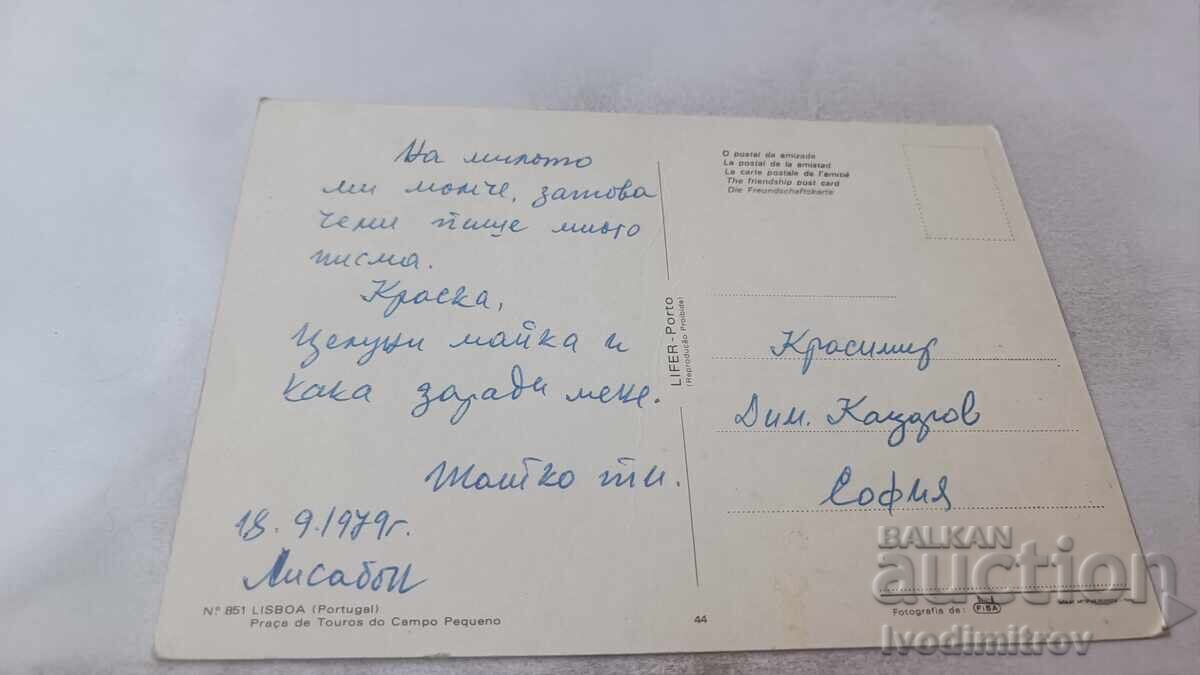 На милото
ми момче, затова
че ми пише много
писма.
Краска,
Целуни майка и
кака заради мене.
Татко ти.
18.9.1979г.
Лисабон
Nº 851 LISBOA (Portugal)
Praça de Touros do Campo Pequeno
44
LIFER-Porto
(Reprodução Proibida)
O postal da amizade
La postal de la amistad
La carte postale de l'amitié
The friendship post card
Die Freundschaftskarte
Красимир
Дим.
София
Fotografia de: FISA
BALKAN
auction
Ivodimitrov